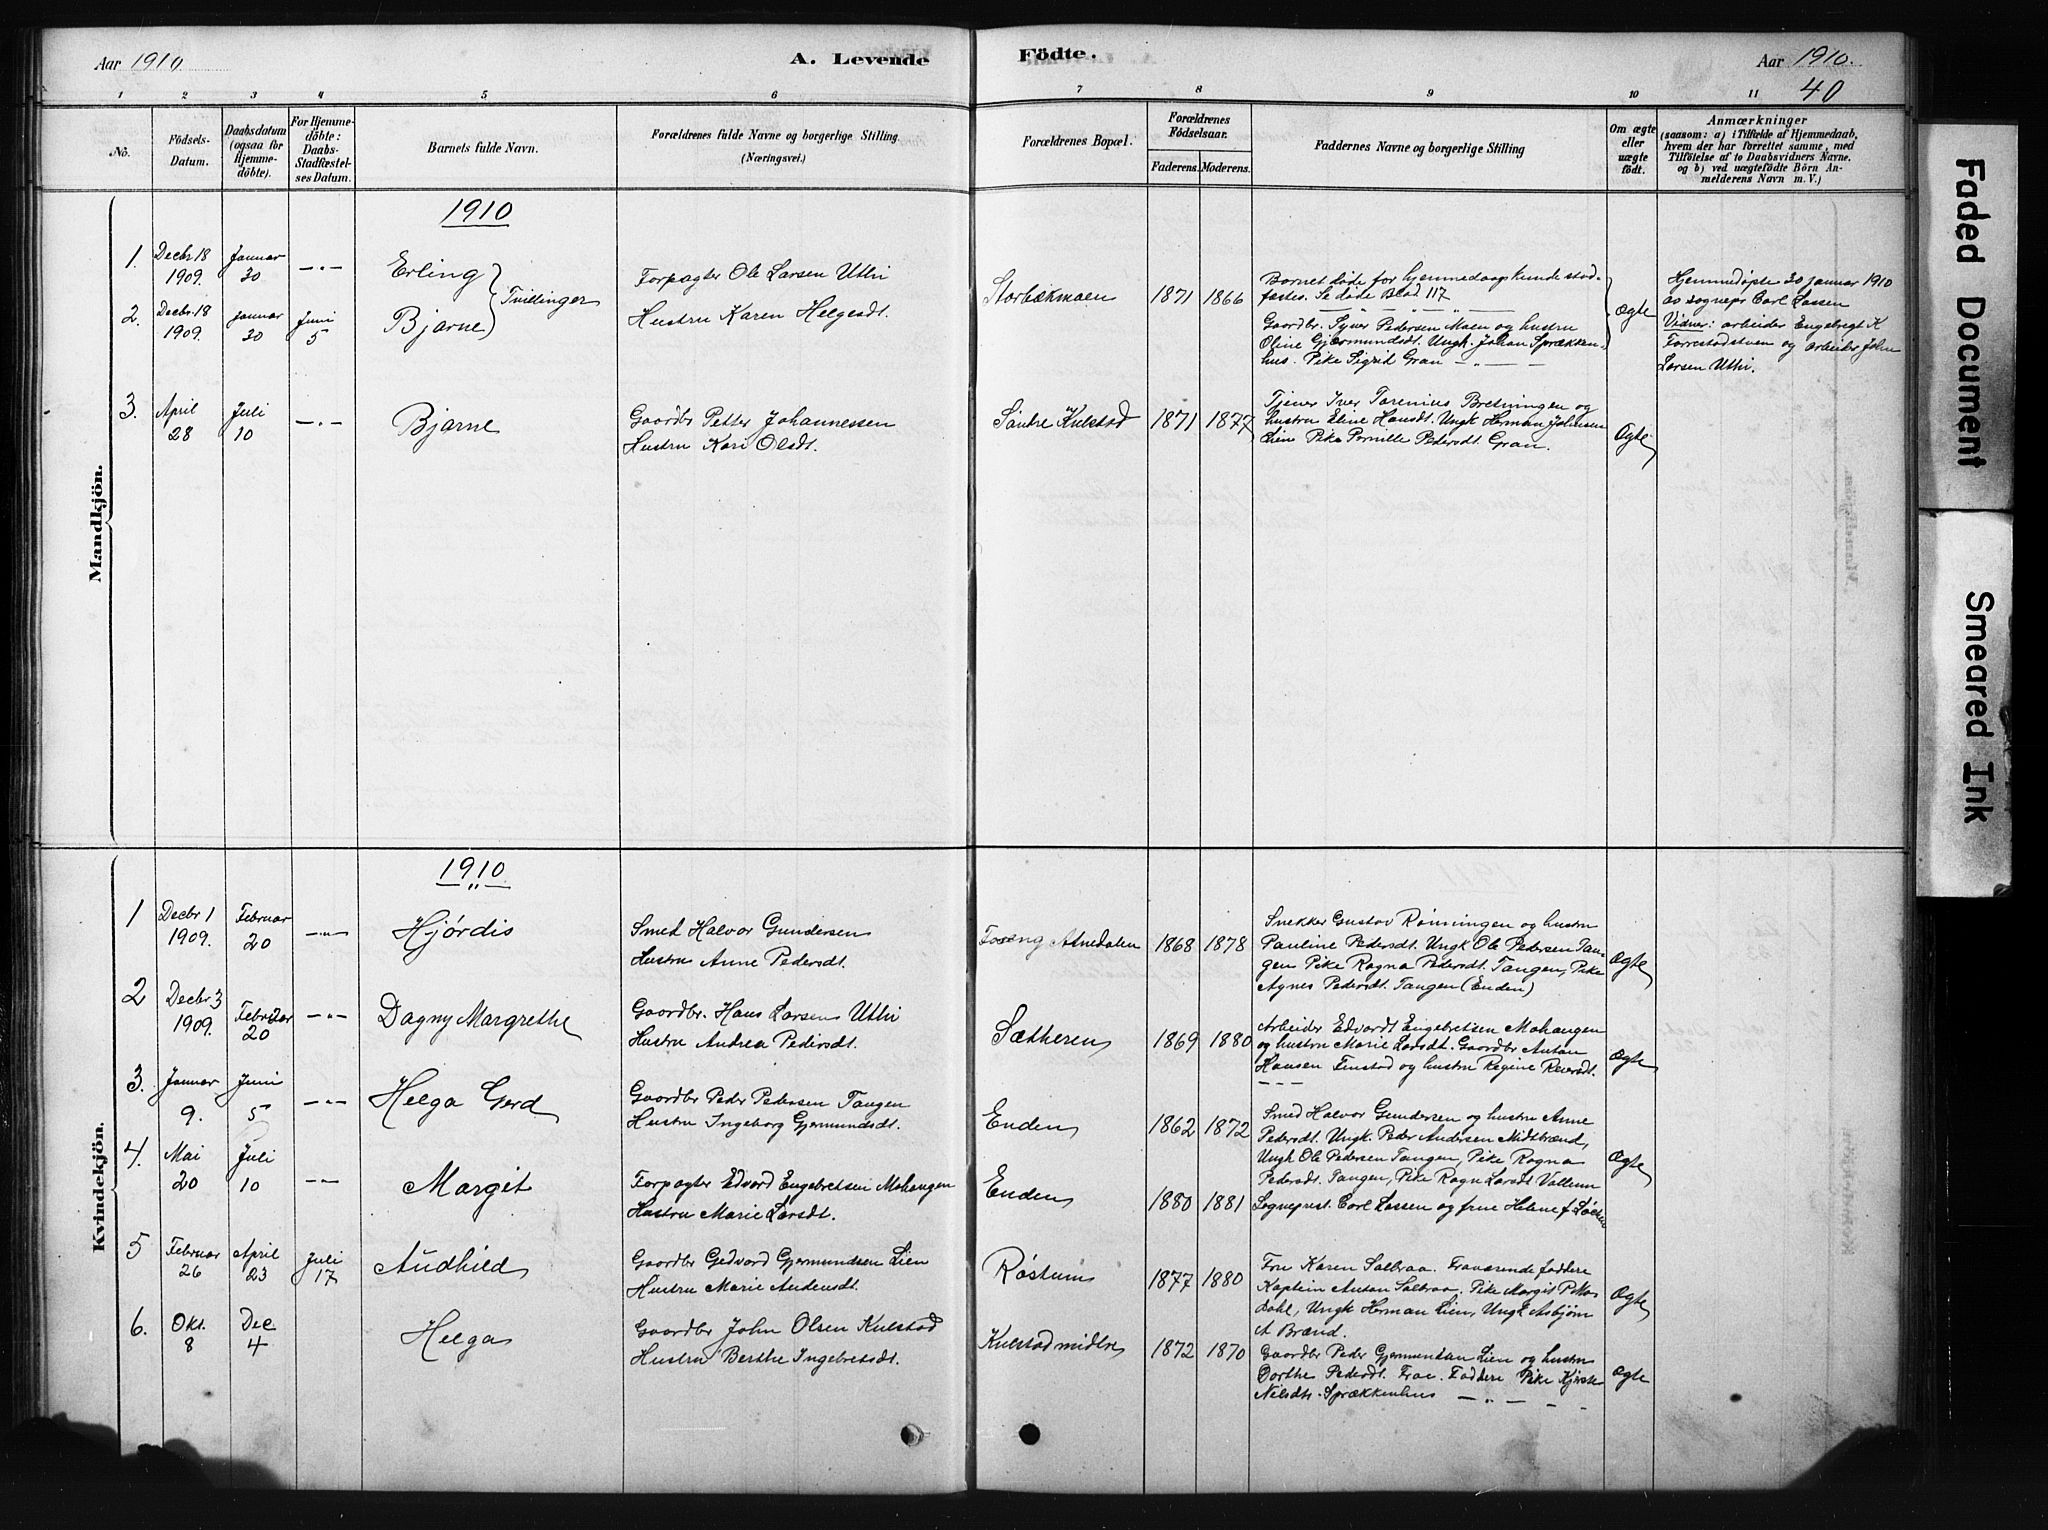 Aar 1910.
A. Levende Födte.
Aar 1910.
40
1 2 3 4 5 6 7 8 9 10 11
No.
Födsels-Datum.
Daabsdatum (ogsaa for Hjemmedöbte).
For Hjemmedöbte: Daabs-Stadfæstelses Datum.
Barnets fulde Navn.
Forældrenes fulde Navne og borgerlige Stilling. (Næringsvei.)
Forældrenes Bopæl.
Forældrenes Födselsaar.
Faderens. Moderens.
Faddernes Navne og borgerlige Stilling
Om ægte eller uægte födt.
Anmærkninger
(saasom: a) i Tilfælde af Hjemmedaab,
hvem der har forrettet samme, med
Tilföielse af to Daabsvidners Navne.
og b) ved uægtefödte Börn An-
melderens Navn m. V.)
Mandkjön.
1910
1. Decbr 18 1909. Januar 30 —„— Erling
Tvillinger
Forpagter Ole Larsen Uthi
Hustru Karen Helgesdt.
Storbækmoen 1871 1866
Barnet døde før hjemmedaap kunde stad-
festes. Se døde Blad 117
2. Decbr. 18 1909. Januar 30 Juni 5 Bjarne
Gaardbr. Syver Pedersen Moen og hustru
Oline Gjermundsdt. Ungk. Johan Sprækken-
hus. Pike Sigrid Gran — „ — —
Ægte
Hjemmedøpte 30 januar 1910
av sognepr Carl Lassen
Vidner: arbeider Engebregt K
Forrestadstuen og arbeider John
Larsen Uthi.
3. April 28 Juli 10 —„— Bjarne
Gaardbr Petter Johannessen
Hustru Kari Olsdt.
Søndre Kulstad 1871 1877
Tjener Iver Torenius Bretningen og
hustru Eline Hansdt. Ungk Herman Johnsen
Lien Pike Pernille Pedersdt. Gran.
Ægte
Kvindekjön.
1910
1 Decbr 1 1909. Februar 20 —„— Hjørdis
Smed Halvor Gundersen
Hustru Anne Pedersdt.
Foseng Atnedalen 1868 1878
Snekker Gustav Rønningen og hustru
Pauline Pedersdt. Ungk Ole Pedersen Tan-
gen Pike Ragna Pedersdt. Tangen, Pike
Agnes Pedersdt. Tangen (Enden)
Ægte
2 Decbr 3 1909. Februar 20 —„— Dagny Margrethe
Gaardbr. Hans Larsen Uthi
Hustru Andrea Pedersdt.
Sætheren 1869 1880
Arbeider Edvardt Engebretsen Mohangen
og hustru Marie Larsdt. Gaardbr Anton
Hansen Finstad og hustru Regine Reiersdt.
Ægte
3. Januar 9. Juni 5 —„— Helga Gerd
Gaardbr Peder Pedersen Tangen
Hustru Ingeborg Gjermundsdt.
Enden 1862 1872
Smed Halvor Gundersen og hustru Anne
Pedersdt. Ungk. Peder Andersen Midtbrænd,
Ungk Ole Pedersen Tangen, Pike Ragna
Pedersdt. Tangen, Pike Ragn Larsdt Vollum
Ægte
4. Mai 20 Juli 10 —„— Margit
Forpagter Edvard Engebretsen Mohangen
Hustru Marie Larsdt.
Enden 1880 1881
Sogneprst. Carl Lassen og frue Helene f. Løcken
5 Februar 26 April 23 Juli 17 Audhild
Gaardbr Gedvard Gjermundsen Lien
Hustru Marie Andersdt.
Røstum 1877 1880
Fru Karen Solbraa. Fraværende faddere
Kaptein Anton Solbraa. Pike Margit P. Mo-
dahl, Ungk Herman Lien, Ungk Asbjørn
A Brænd.
Ægte
6. Okt. 8 Dec 4 Helga
Gaardbr John Olsen Kulstad
Hustru Berthe Ingebretsdt.
Kulstad midtre 1872 1870
Gaardbr Peder Gjermundsen Lien og hustru
Dorthe Pedersdt. Frav. Faddere Pike Kjersti
Nilsdt. Sprækkenhus — „ — — —
Ægte
Faded Document
Smeared Ink